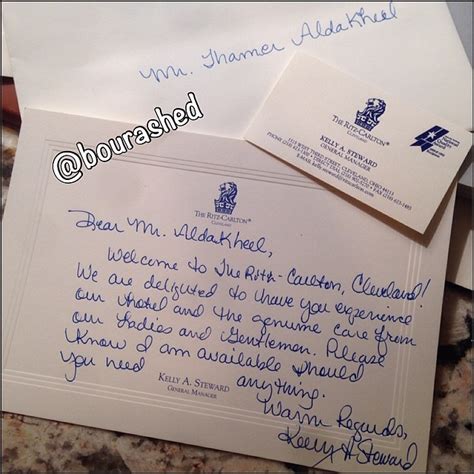 Mr. Thamer Aldakheel
@bourashed
THE RITZ-CARLTON®
CLEVELAND
KELLY A. STEWARD
GENERAL MANAGER
1515 WEST THIRD STREET, CLEVELAND, OHIO 44113
THE RITZ-CARLTON®
CLEVELAND
Dear Mr. Aldakheel,
Welcome to The Ritz-Carlton, Cleveland!
We are delighted to have you experience
our hotel and the genuine care from
our Ladies and Gentlemen. Please
know I am available should
you need anything.
KELLY A. STEWARD
GENERAL MANAGER
Warm Regards,
Kelly A Steward